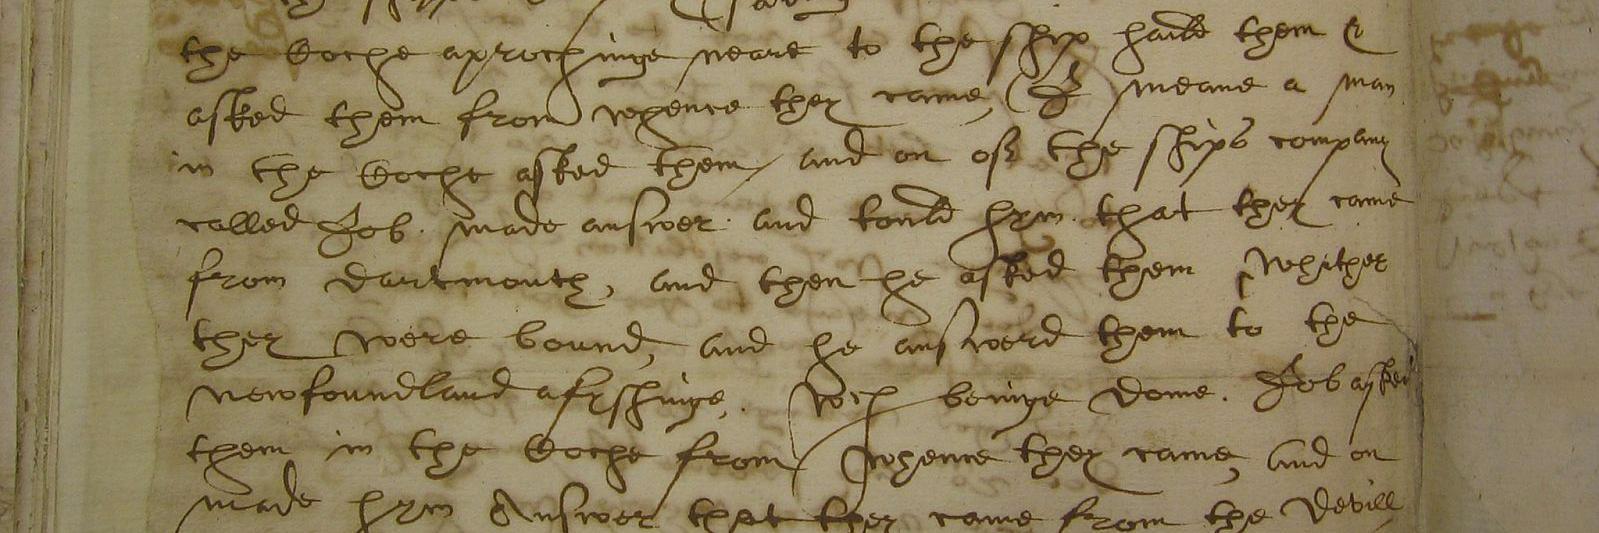 the boche aprochinge neare to the ship haild them &
asked them from whence they came, (I meane a man
in the boche asked them, and on of the ships company
called Job. made answer. and tould hym. that they came
from dartmouth, and then he asked them whither
they were bound, and he answerd them to the
newfoundland afyshinge. wch beinge done. Job asked
them in the boche from whence they came, and on
made hym Answer that they came from the devill